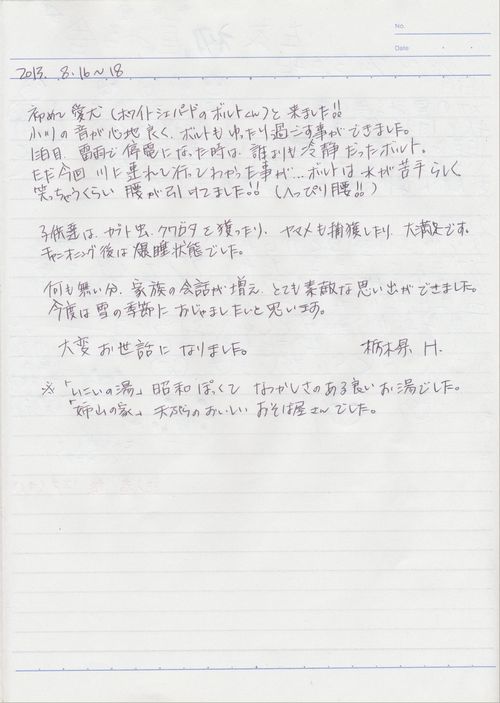 No.
Date
2013. 8.16〜18
初めて愛犬(ホワイトシェパードのボルトくん)と来ました!!
小川の音が心地良く、ボルトもゆったり過ごす事ができました。
1泊目、雷雨で停電になった時は、誰よりも冷静だったボルト。
ただ今回 川に連れて行ってわかった事が…ボルトは水が苦手らしく
笑っちゃうくらい腰が引けてました!!(へっぴり腰!!)
子供達は、カブト虫、クワガタを獲ったり、ヤマメも捕獲したり、大満足です。
キャニオニング後は爆睡状態でした。
何も無い分、家族の会話が増え、とても素敵な思い出ができました。
今度は雪の季節におじゃましたいと思います。
大変お世話になりました。 栃木県 H.
※「いこいの湯」昭和ぽくて なつかしさのある良いお湯でした。
「姉山の家」天ぷらのおいしい おそば屋さんでした。